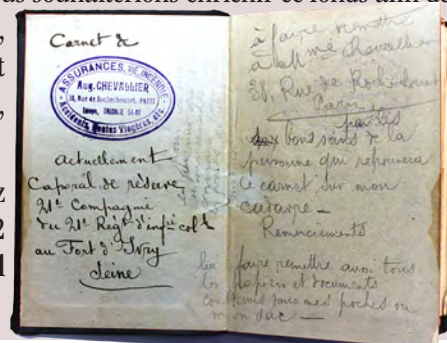 us souhaiterions enrichir ce fonds afin de
,
t
,
z
2
1
Carnet de
ASSURANCES, VIE, INCENDIE
Aug. CHEVALLIER
38, Rue de Rochechouart, PARIS
Accidents, Rentes Viagères, etc.
actuellement
Caporal de réserve
21e Compagnie
du 21e Régt d'infie colle
au Fort d'Ivry
Seine
à faire remettre
à Mme Chevallier
38, Rue de Rochechouart
Paris
par les
bons soins de la
personne qui retrouvera
ce carnet sur mon
cadavre —
Remerciements
faire remettre aussi tous
les papiers et documents
contenus dans mes poches ou
mon sac —